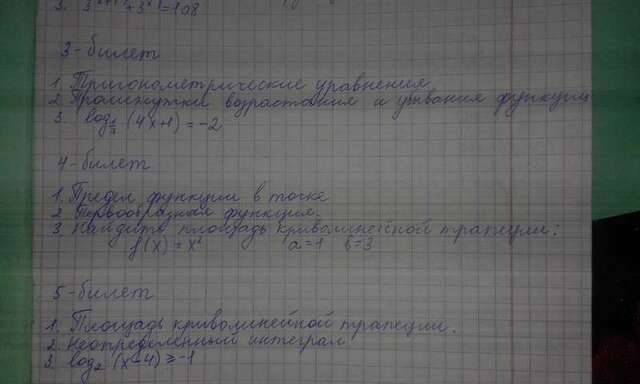 3-билет
1. Тригонометрические уравнения
2. Промежутки возрастания и убывания функции
3. log₇ (4x+1) = -2
4-билет
1. Предел функции в точке
2. Первообразная функция.
3. Найдите площадь криволинейной трапеции:
f(x) = x² a=1 b=3
5-билет
1. Площадь криволинейной трапеции.
2. Неопределенный интеграл
3. log₂ (x-4) = -1